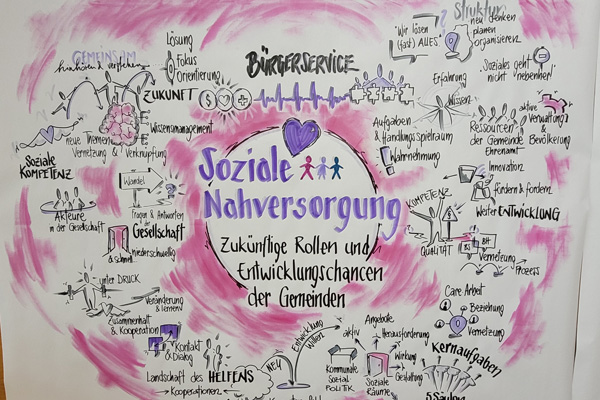 Soziale
Nahversorgung
Zukünftige Rollen und
Entwicklungschancen
der Gemeinden
BÜRGERSERVICE
Lösung
Fokus
Orientierung
GEMEINSAM
ZUKUNFT
Wissensmanagement
neue Themen
Vernetzung & Verknüpfung
Soziale
KOMPETENZ
Akteure
in der Gesellschaft
Wandel
Fragen & Antworten
der
Gesellschaft
niederschwellig
& schnell
unter DRUCK
Veränderung
& lernen
Zusammenhalt
& Kooperation
Kontakt
& Dialog
Landschaft des HELFENS
→ Kooperationen
NEU
Entwicklung
Willen
aktiv
Kommunale
Sozial
POLITIK
Angebote
Herausforderung
Wirkung
Gestaltung
Soziale
Räume
Kernaufgaben
5 Säulen
Care Arbeit
Beziehung
Vernetzung
"Wir lösen
(fast) ALLES"
Struktur
neu denken
planen
organisieren
"Soziales geht
nicht nebenher"
Erfahrung
Wissen
Aufgaben
& Handlungsspielraum
Wahrnehmung
Ressourcen
der Gemeinde
Ehrenamt
aktive
Verwaltung
& Bevölkerung
Innovation
fördern & fordern
WeiterENTWICKLUNG
KOMPETENZ
QUALITÄT
BS
BH
Vernetzung
Prozess